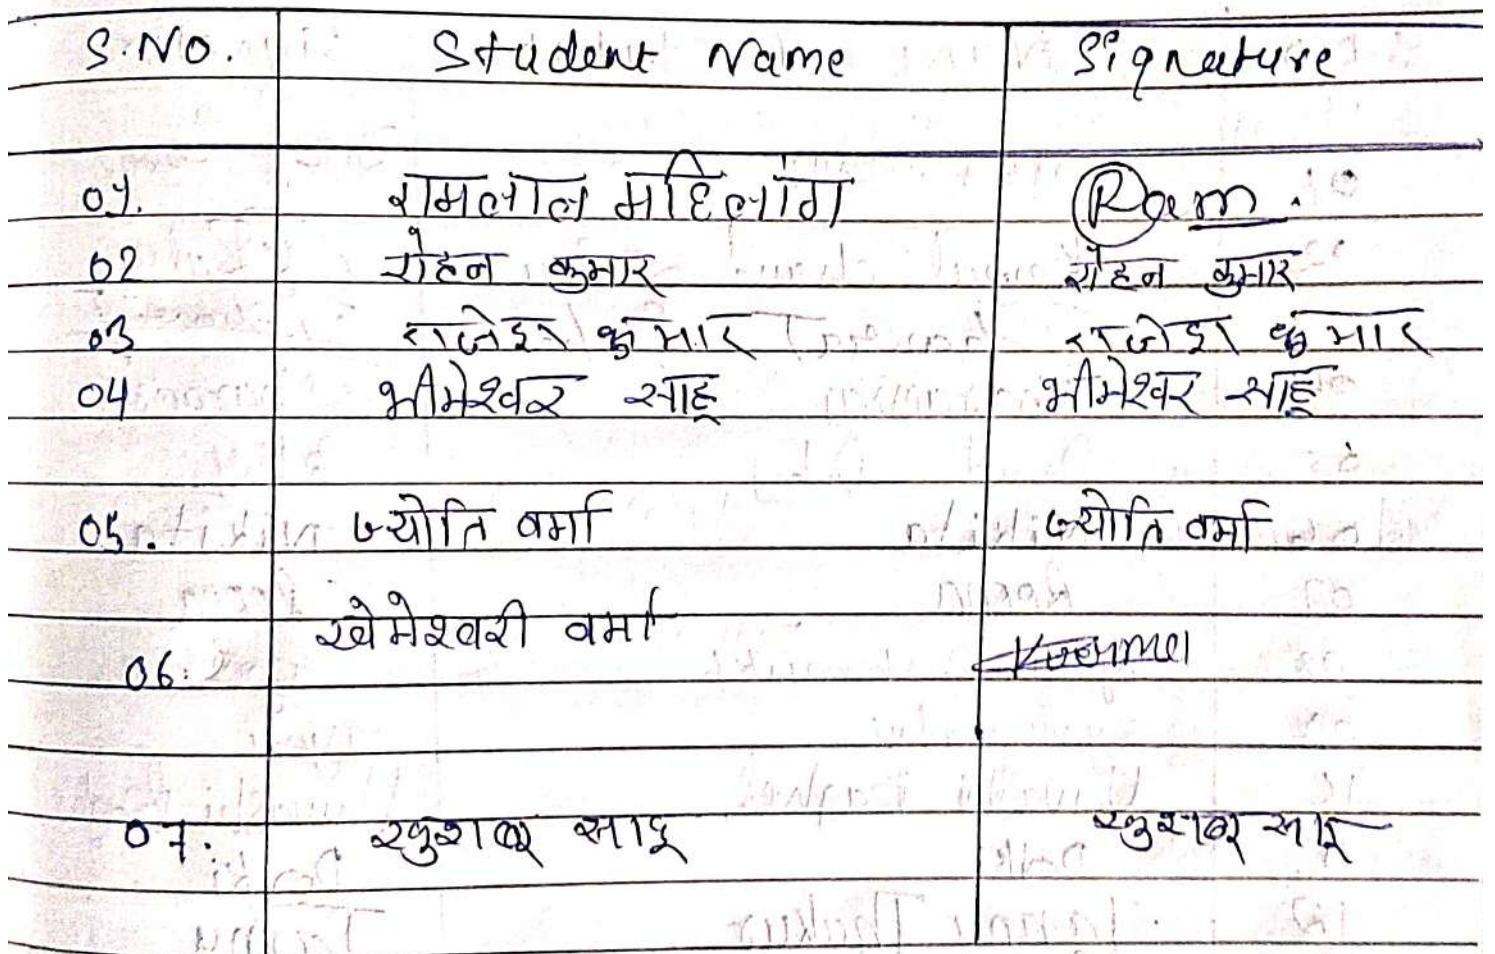 S.NO. Student Name Signature
01. रामलाल महिलांग Ram.
02 रोहन कुमार रोहन कुमार
03 राजेश कुमार राजेश कुमार
04 भीमेश्वर साहू भीमेश्वर साहू
05. ज्योति वर्मा ज्योति वर्मा
खेमेश्वरी वर्मा
06.
07. खुशबू साहू खुशबू साहू